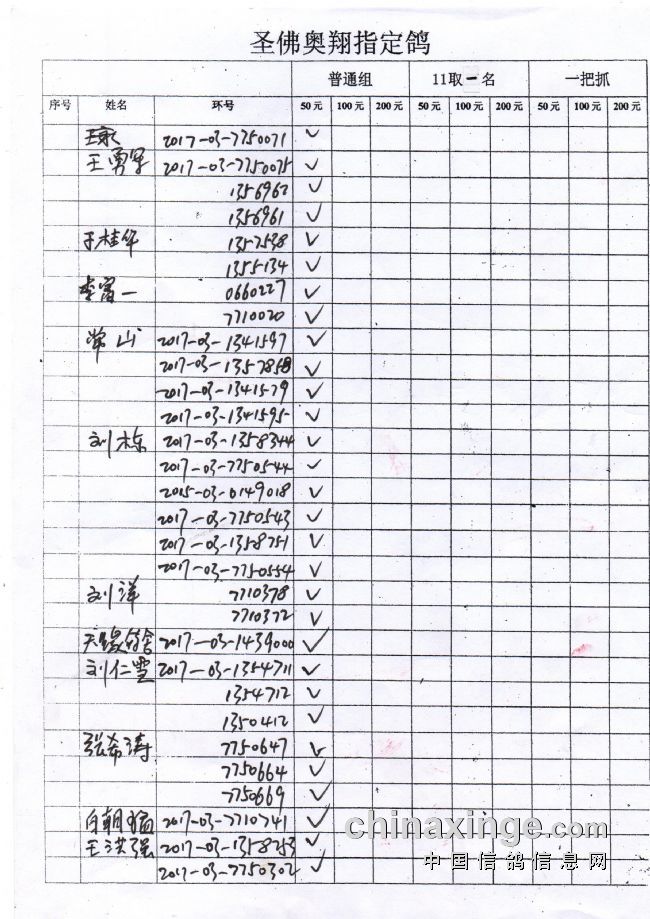 圣佛奥翔指定鸽
普通组 11取一名 一把抓
序号 姓名 环号 50元 100元 200元 50元 100元 200元 50元 100元 200元
2017-03-7750071 ✓
王勇军 2017-03-7750075 ✓
1356962 ✓
1356961 ✓
于桂华 1357538 ✓
1355134 ✓
李富一 0660227 ✓
7710020 ✓
常山 2017-03-1341597 ✓
2017-03-1357858 ✓
2017-03-1341579 ✓
2017-03-1341595 ✓
刘栋 2017-03-1358344 ✓
2017-03-7750544 ✓
2015-03-0149018 ✓
2017-03-7750543 ✓
2017-03-1358751 ✓
2017-03-7750554 ✓
刘洋 7710378 ✓
7710372 ✓
2017-03-1439000 ✓
刘仁雪 2017-03-1354711 ✓
1354712 ✓
1350412 ✓
张希涛 7750647 ✓
7750664 ✓
7750669 ✓
2017-03-7710741 ✓
王洪强 2017-03-1358253 ✓
2017-03-7750302 ✓
chinaxinge.com
中国信鸽信息网